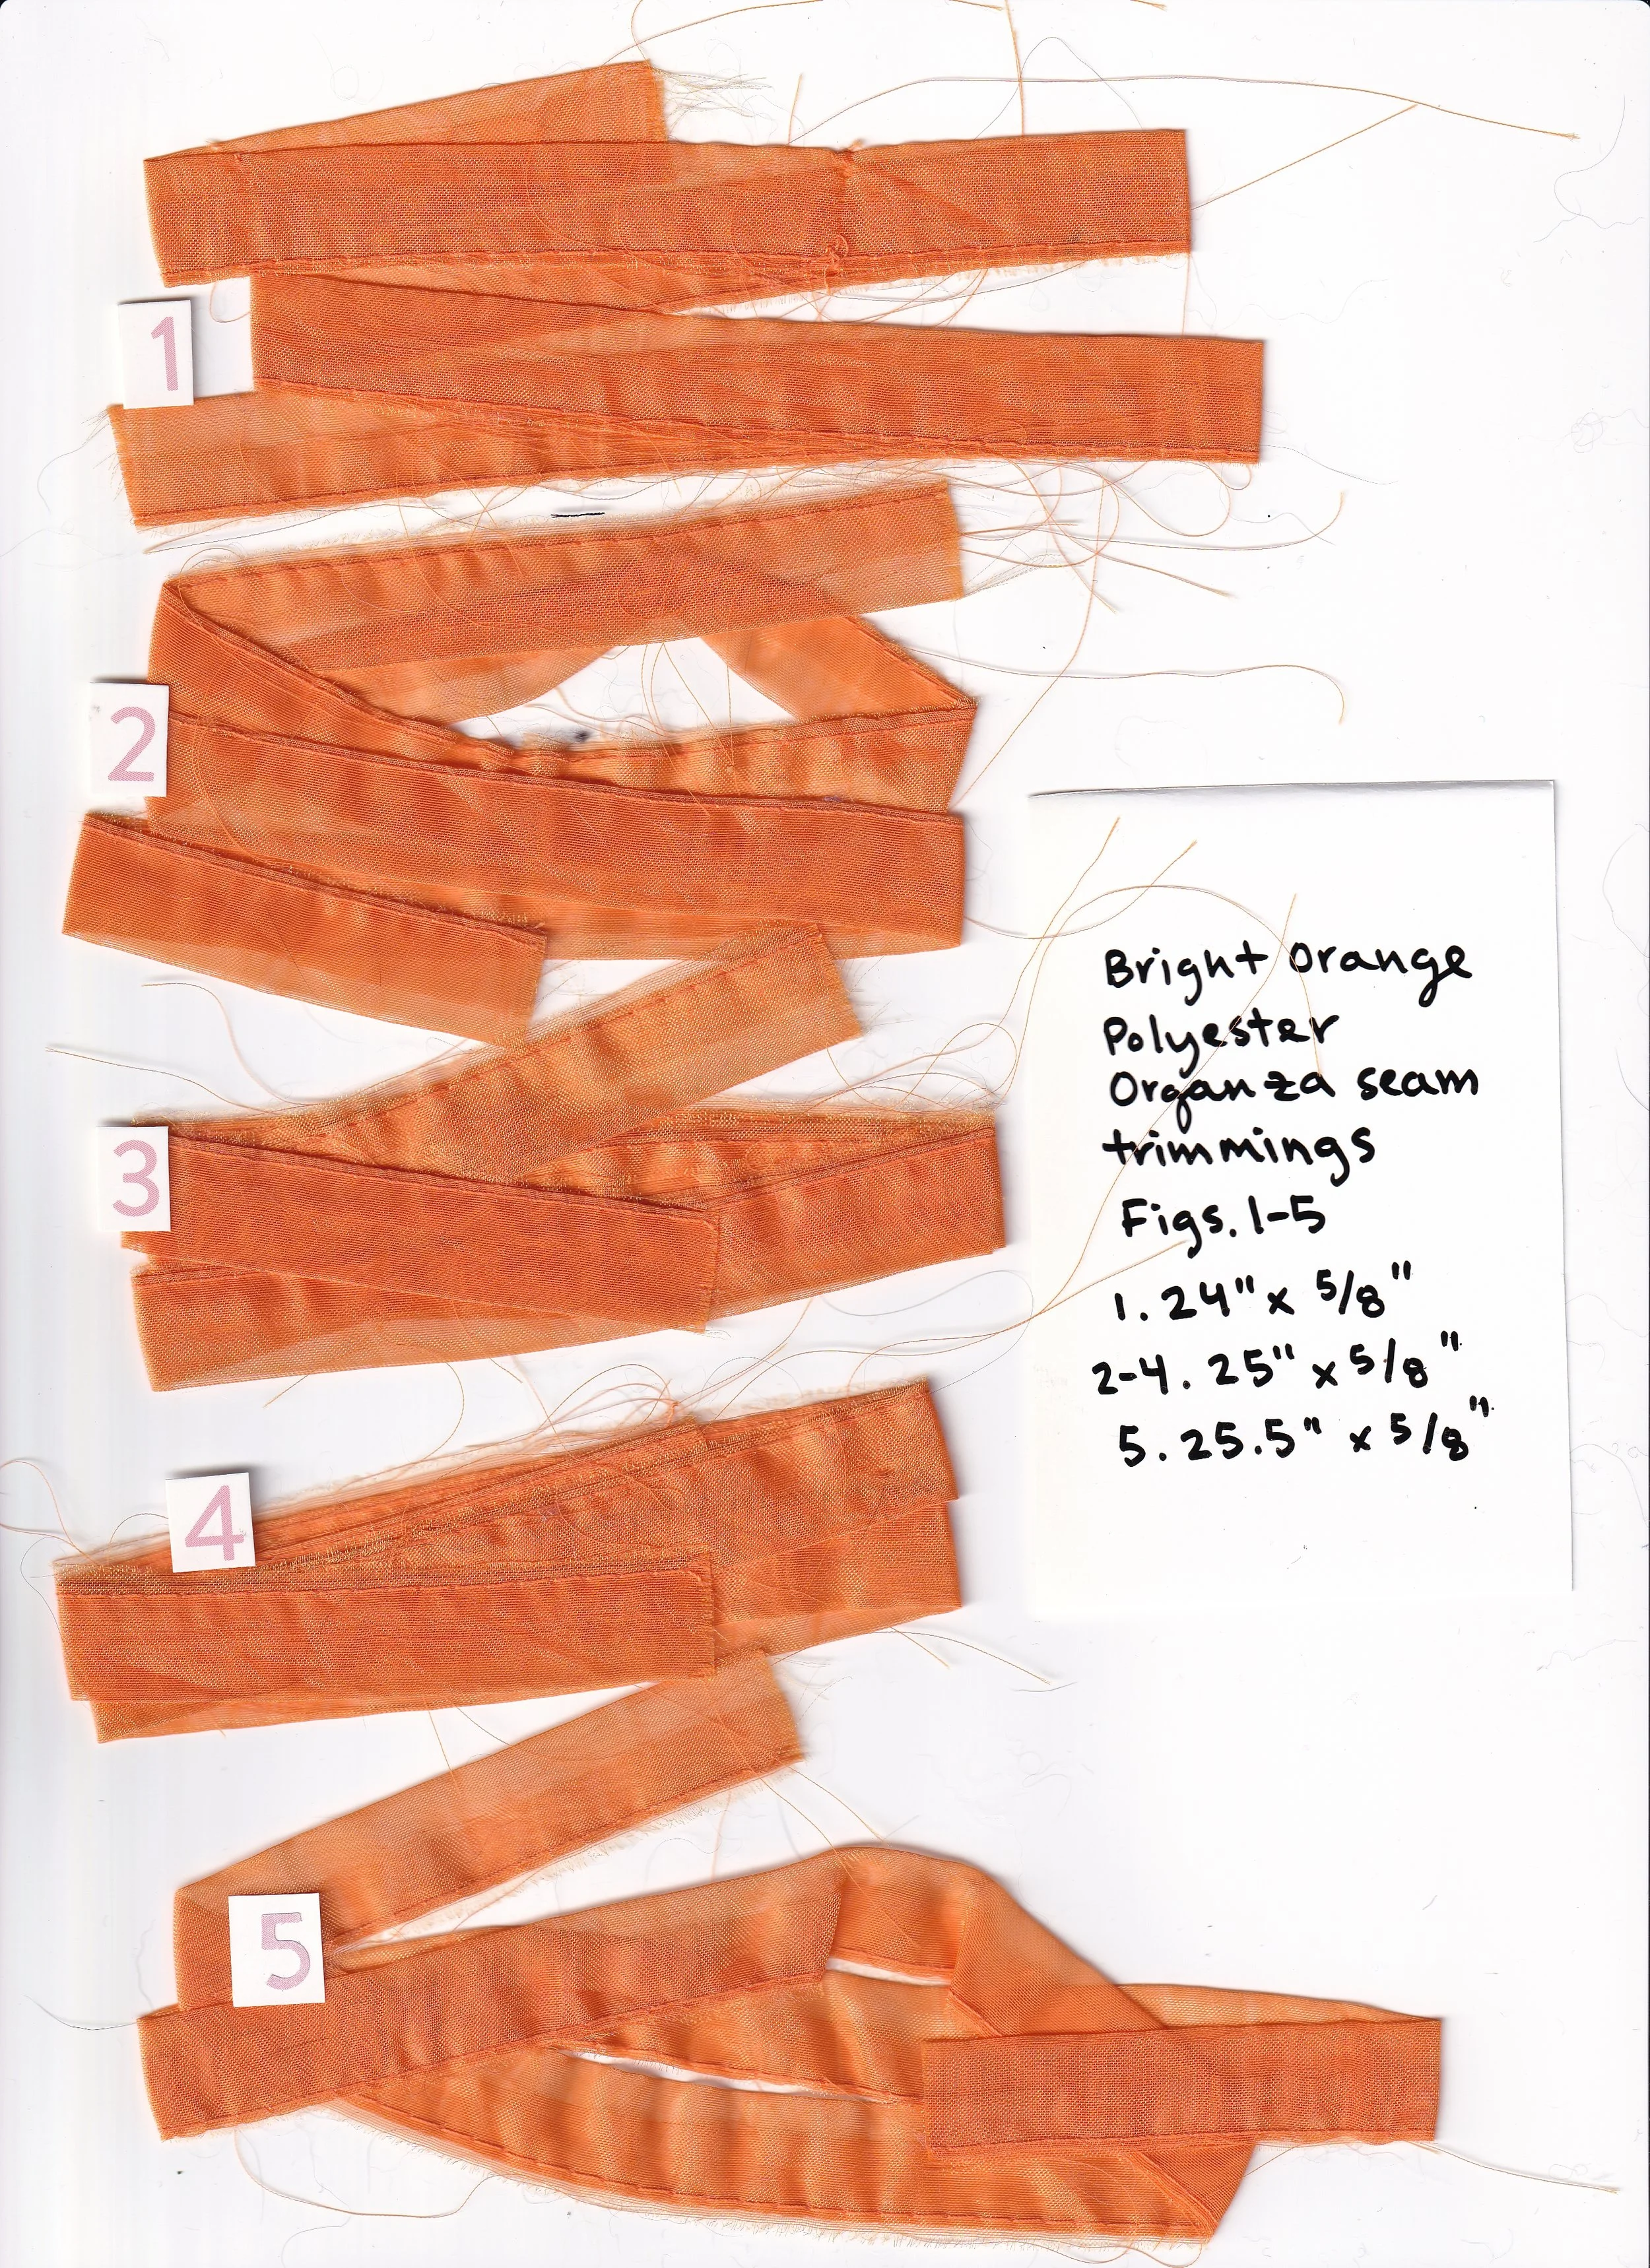 1
2
3
4
5
Bright Orange
Polyester
Organza seam
trimmings
Figs. 1-5
1. 24" x 5/8"
2-4. 25" x 5/8"
5. 25.5" x 5/8"